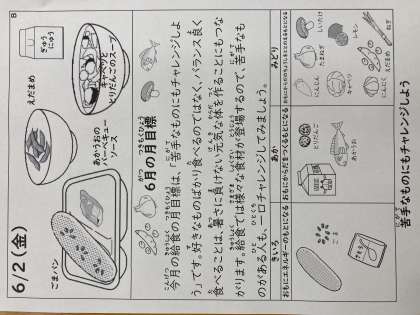 6/2(金)
8
ぎゅうにゅう
キャベツと
とりだんごのスープ
えだまめ
あかうおの
バーベキュー
ソース
ごまパン
6月の月目標
今月の給食の月目標は、「苦手なものにもチャレンジしよ
う」です。好きなものばかり食べるのではなく、バランス良く
食べることは、暑さに負けない元気な体を作ることにもつな
がります。給食では様々な食材が登場するので、苦手なも
のがある人も、一口チャレンジしてみましょう。
きいろ
あか
みどり
おもにエネルギーのもとになる
おもにからだをつくるもとになる
おもにからだのちょうしをととのえるもとになる
とりだんご
あかうお
しいたけ
レモン
ねぎ
たまねぎ
えだまめ
にんじん
キャベツ
にんにく
苦手なものにもチャレンジしよう